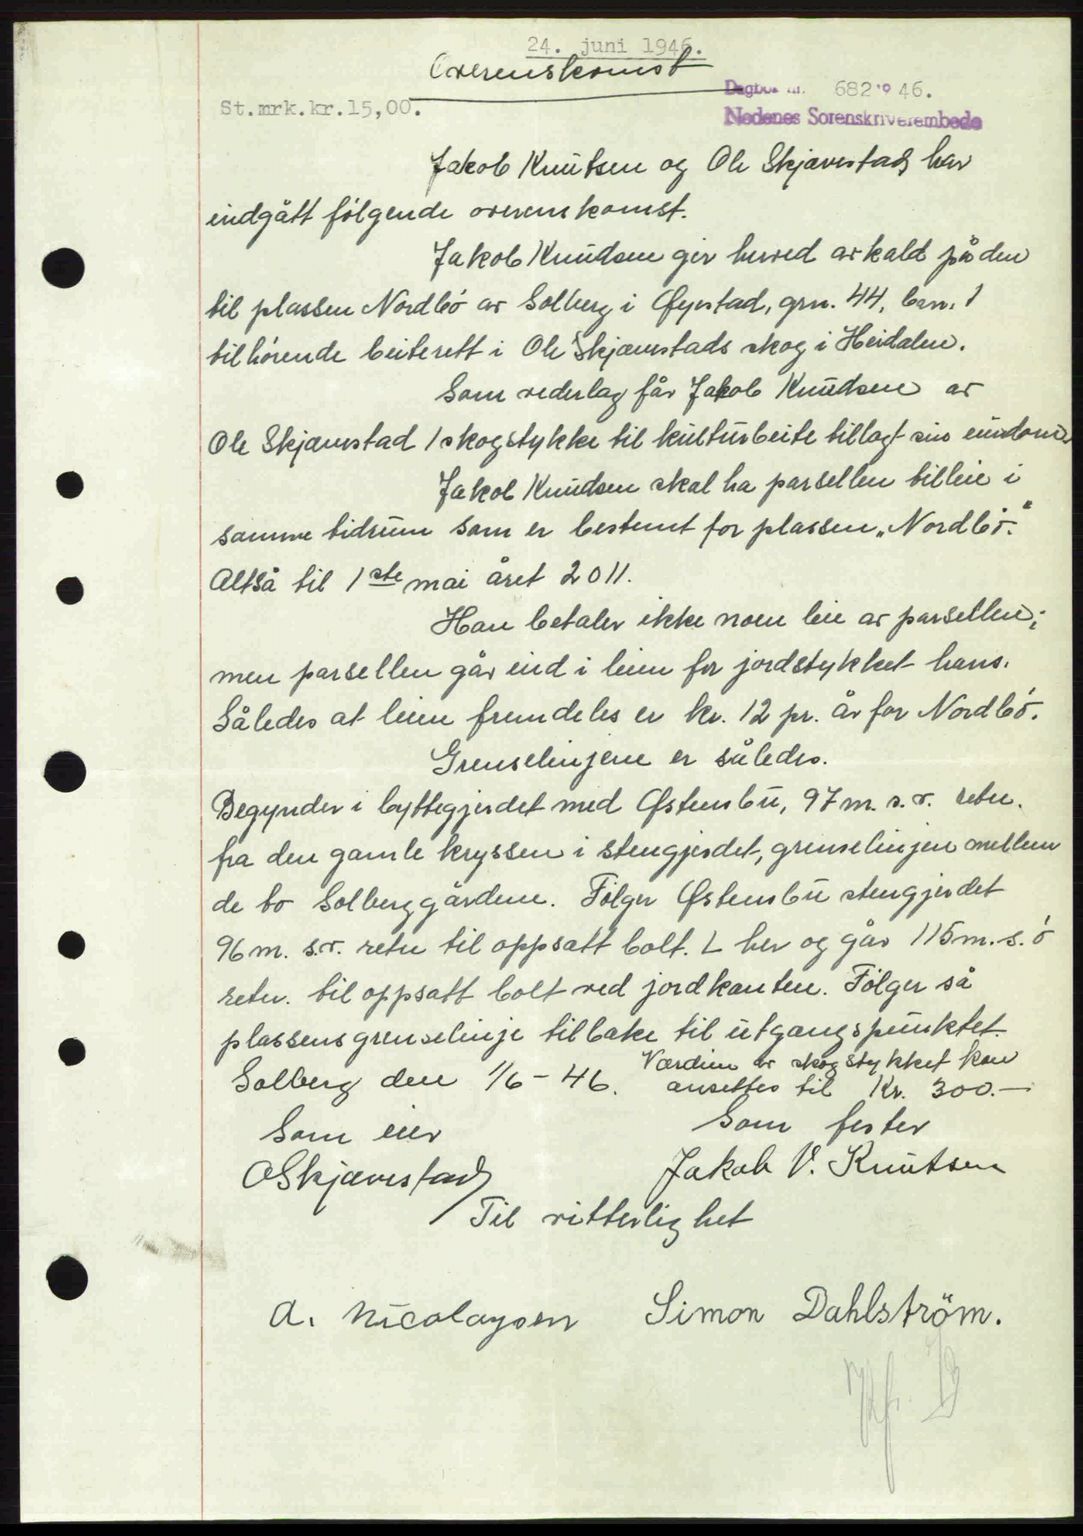 24. juni 1946.
Overenskomst
Dagbok nr. 682 19 46.
St.mrk.kr.15,00.
Nedenes Sorenskriverembede
Jakob Knutsen og Ole Skjævestad har
indgått følgende overenskomst.
Jakob Knudsen gir herved avkald på den
til plassen Nordbö av Solberg i Øyestad, grn. 44, brn. 1
tilhörende beiterett i Ole Skjævestads skog i Heidalen.
Som vederlag får Jakob Knudsen av
Ole Skjævestad 1 skogstykke til kulturbeite tillagt sin eiendom.
Jakob Knudsen skal ha parsellen til leie i
samme tidsrum som er bestemt for plassen „Nordbö“.
Altså til 1ste mai året 2011.
Han betaler ikke noen leie av parsellen;
men parsellen går ind i leien for jordstykket hans.
Således at leien fremdeles er kr. 12 pr. år for Nordbö.
Grenselinjene er således.
Begynder i byttegjerdet med Østensbu, 97 m. s.v. retn.
fra den gamle kryssen i stengjerdet, grenselinjen mellem
de to Solberggårdene. Følger Østensbu stengjerdet
96 m. s.v. retn til oppsatt bolt. L her og går 115 m. s.ö
retn. til oppsatt bolt ved jordkanten. Følger så
plassens grenselinje tilbake til utgangspunktet.
Værdien av skogstykket kan
Solberg den 1/6 - 46. ansettes til Kr. 300.-
Som eier Som fester
O Skjævestad Jakob V. Knutsen
Til vitterlighet
A. Nicolaysen Simon Dahlström.